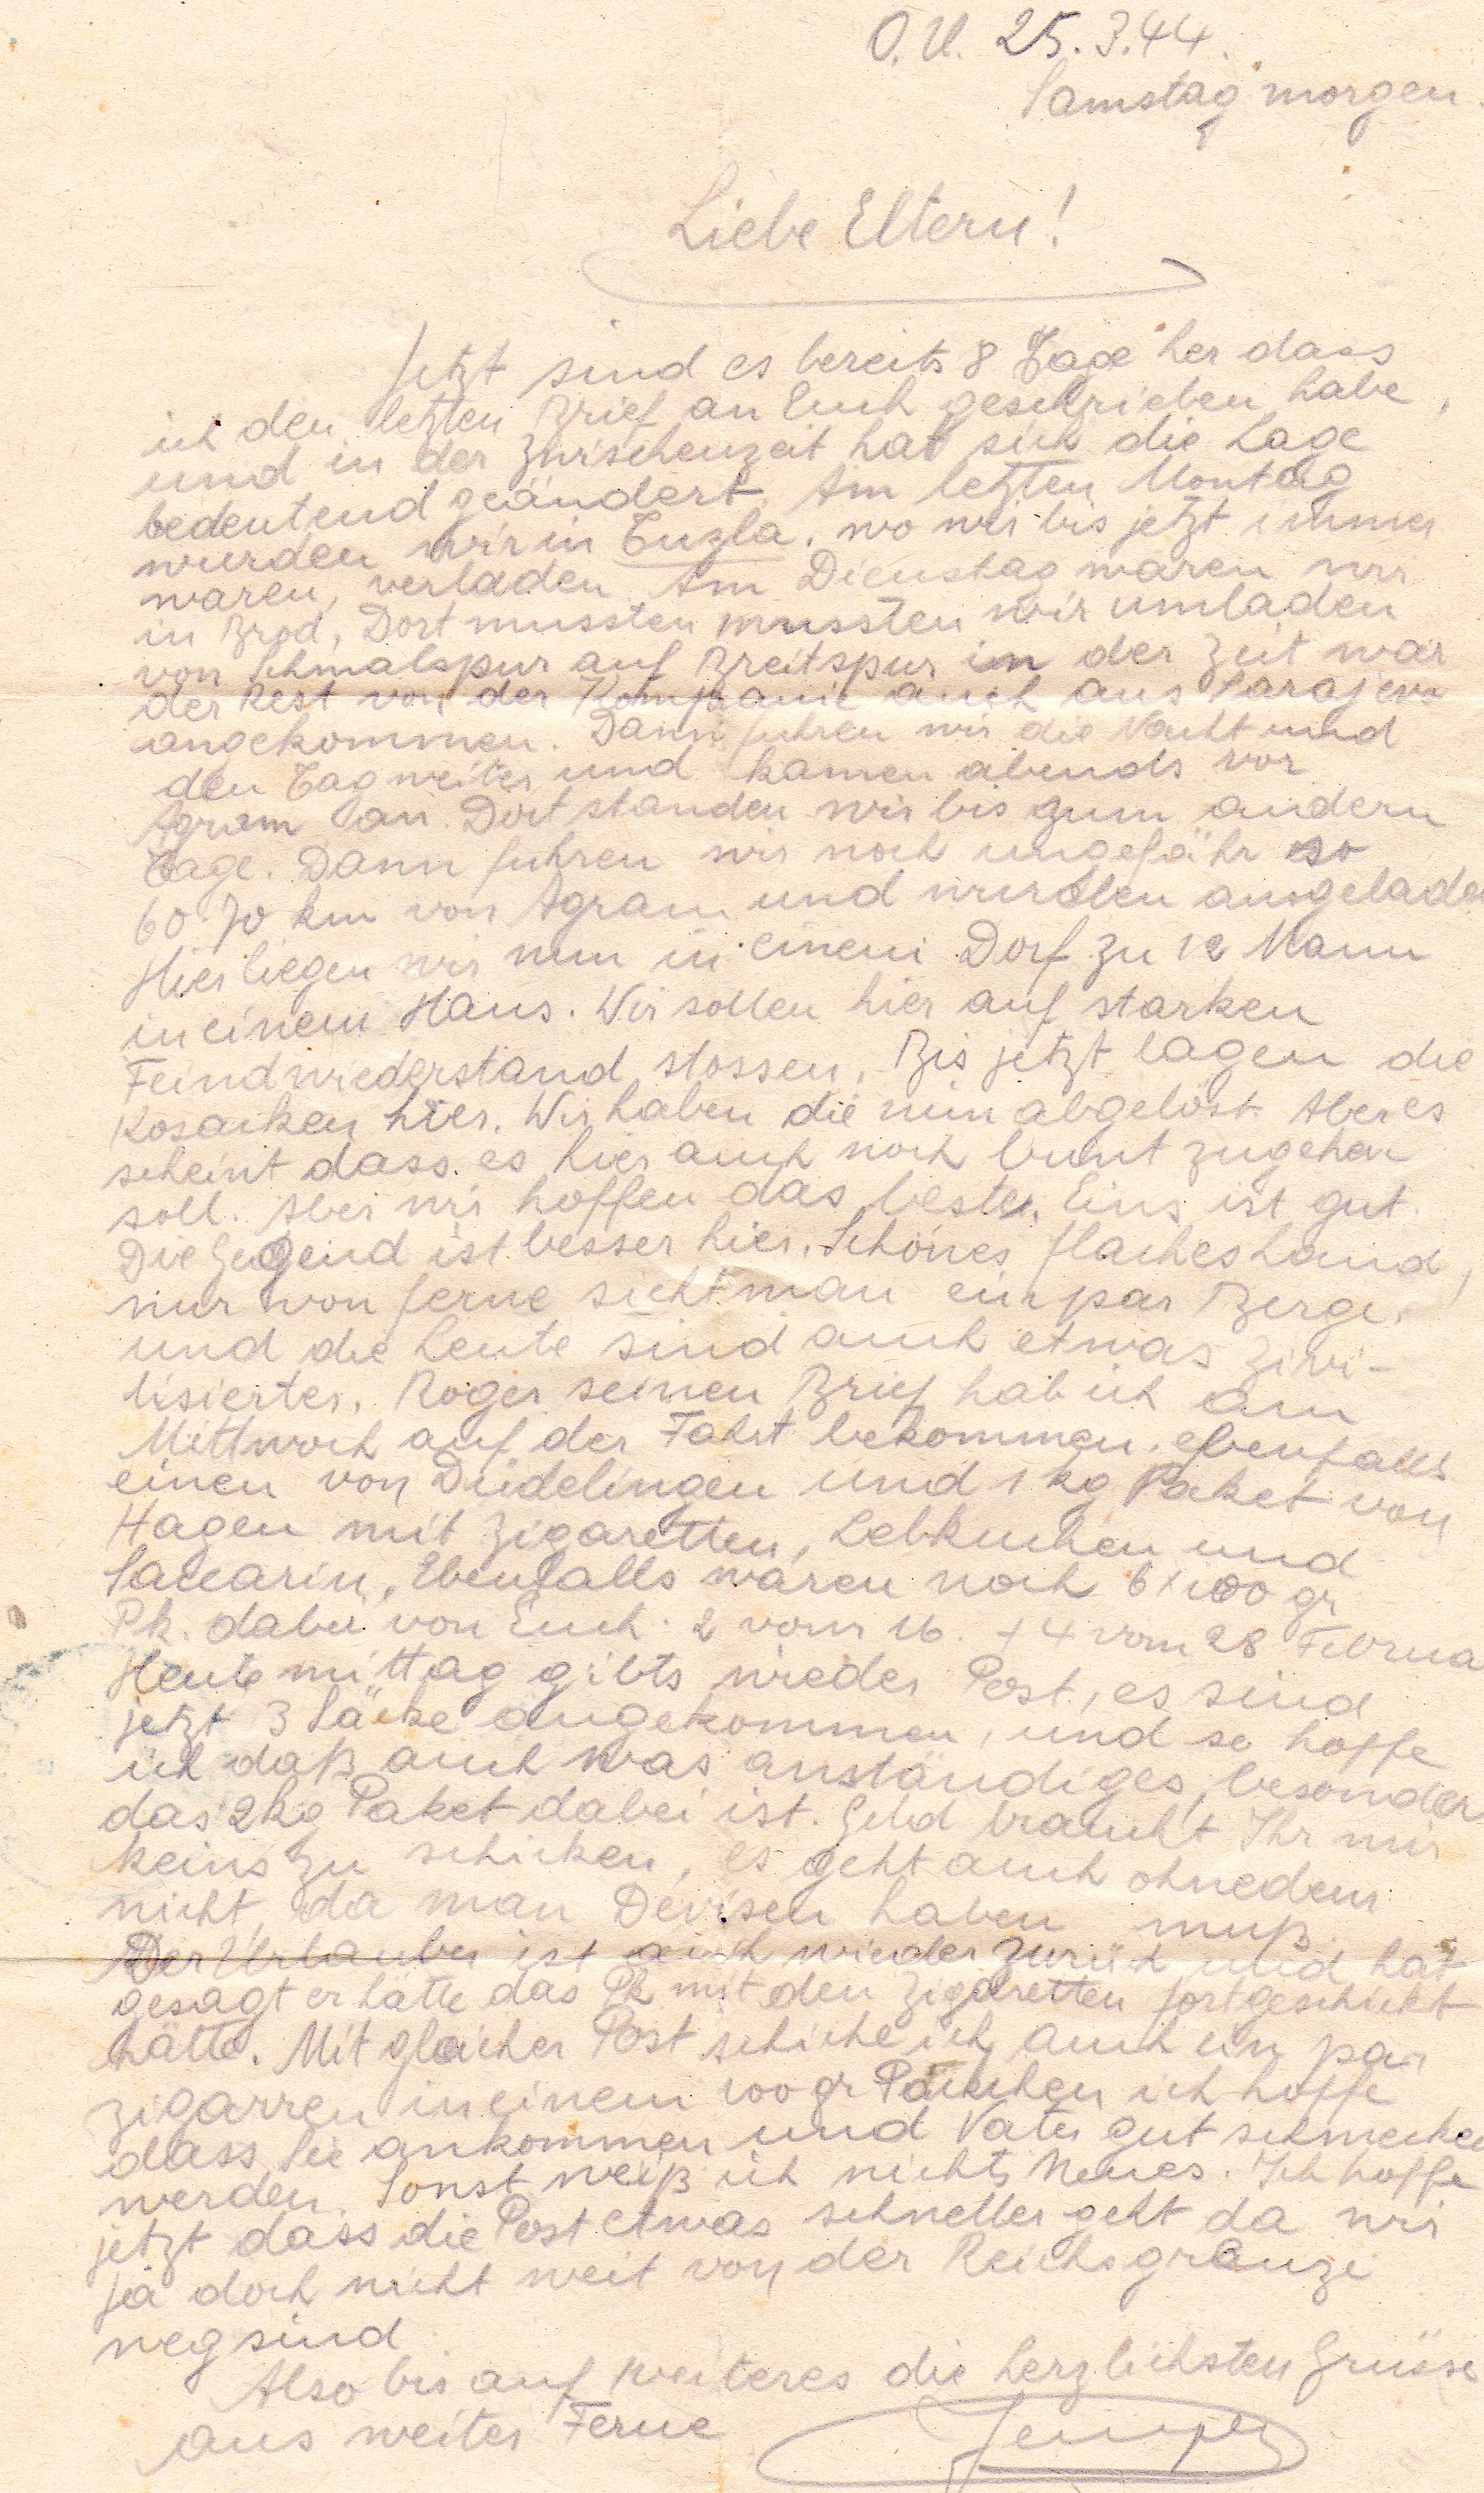 O.U. 25.3.44.
Samstag morgen.
Liebe Eltern!
Jetzt sind es bereits 8 Tage her dass
ich den letzten Brief an Euch geschrieben habe,
und in der Zwischenzeit hat sich die Lage
bedeutend geändert. Am letzten Montag
wurden wir in Tuzla, wo wir bis jetzt immer
waren, verladen. Am Dienstag waren wir
in Brod, Dort mussten mussten wir umladen
von Schmalspur auf Breitspur in der Zeit war
der Rest von der Kompanie auch aus Sarajevo
angekommen. Dann fuhren wir die Nacht und
den Tag weiter und kamen abends vor
Agram an. Dort standen wir bis zum andern
Tage. Dann fuhren wir noch ungefähr so
60-70 km von Agram und wurden ausgeladen
Hier liegen wir nun in einem Dorf zu 12 Mann
in einem Haus. Wir sollen hier auf starken
Feindwiederstand stossen, Bis jetzt lagen die
Kosacken hier. Wir haben die nun abgelöst. Aber es
scheint dass es hier auch noch bunt zugehen
soll. Aber wir hoffen das beste. Eins ist gut.
Die Gegend ist besser hier. Schönes flaches Land,
nur von ferne sieht man ein par Berge.
und die Leute sind auch etwas zivi-
lisierter. Roger seinen Brief hab ich am
Mittwoch auf der Fahrt bekommen. ebenfalls
einen von Düdelingen und 1 kg Paket von
Hagen mit Zigaretten, Lebkuchen und
Saccarin, Ebenfalls waren noch 6x100 gr
Pk. dabei von Euch. 2 vom 16. + 4 vom 28 Februa
Heute mittag gibts wieder Post, es sind
jetzt 3 Säcke angekommen, und so hoffe
ich daß auch was anständiges, besonder
das 2kg Paket dabei ist. Geld braucht Ihr mir
keins zu schicken, es geht auch ohnedem
nicht, da man Devisen haben muß.
Der Urlauber ist auch wieder zurück und hat
gesagt er hätte das Pk mit den Zigaretten fortgeschickt
hätte. Mit gleicher Post schicke ich auch ein par
Zigarren in einem 100gr Päckchen ich hoffe
dass Sie ankommen und Vater gut schmecken
werden. Sonst weiß ich nichts Neues. Ich hoffe
jetzt dass die Post etwas schneller geht da wir
ja doch nicht weit von der Reichsgrenze
weg sind.
Also bis auf weiteres die herzlichsten Grüsse
aus weiter Ferne